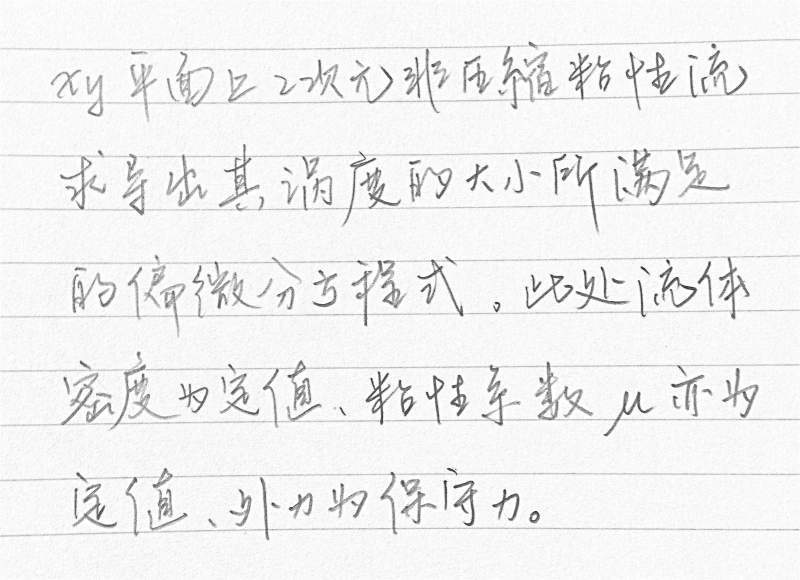 xy平面上2次元非圧縮粘性流
求导出其涡度的大小所满足
的偏微分方程式。此处流体
密度为定值、粘性系数μ亦为
定值、外力为保守力。